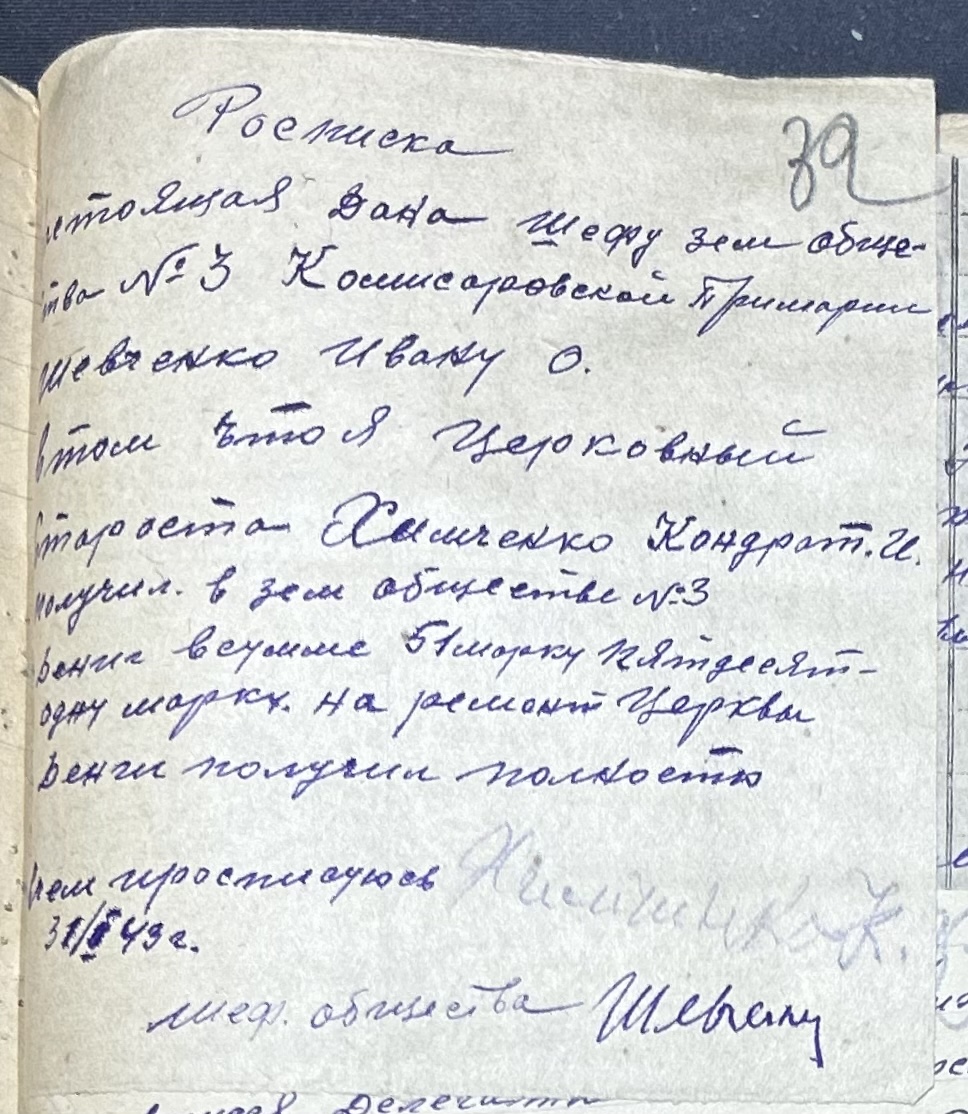 Росписка
39
стоящая Дана Шефу зем обще-
тва № 3 Комисаровской Примарии
Шевченко Ивану О.
втом что я Церковный
Староста Химченко Кондрат. И.
получил. в зем обществе № 3
денги всумме 51 марку пятдесят-
одну марку. на ремонт Церквы
Денги получил полностю
чем йросписуюсь Химченко К.
31/I 43 г.
Шеф. общества